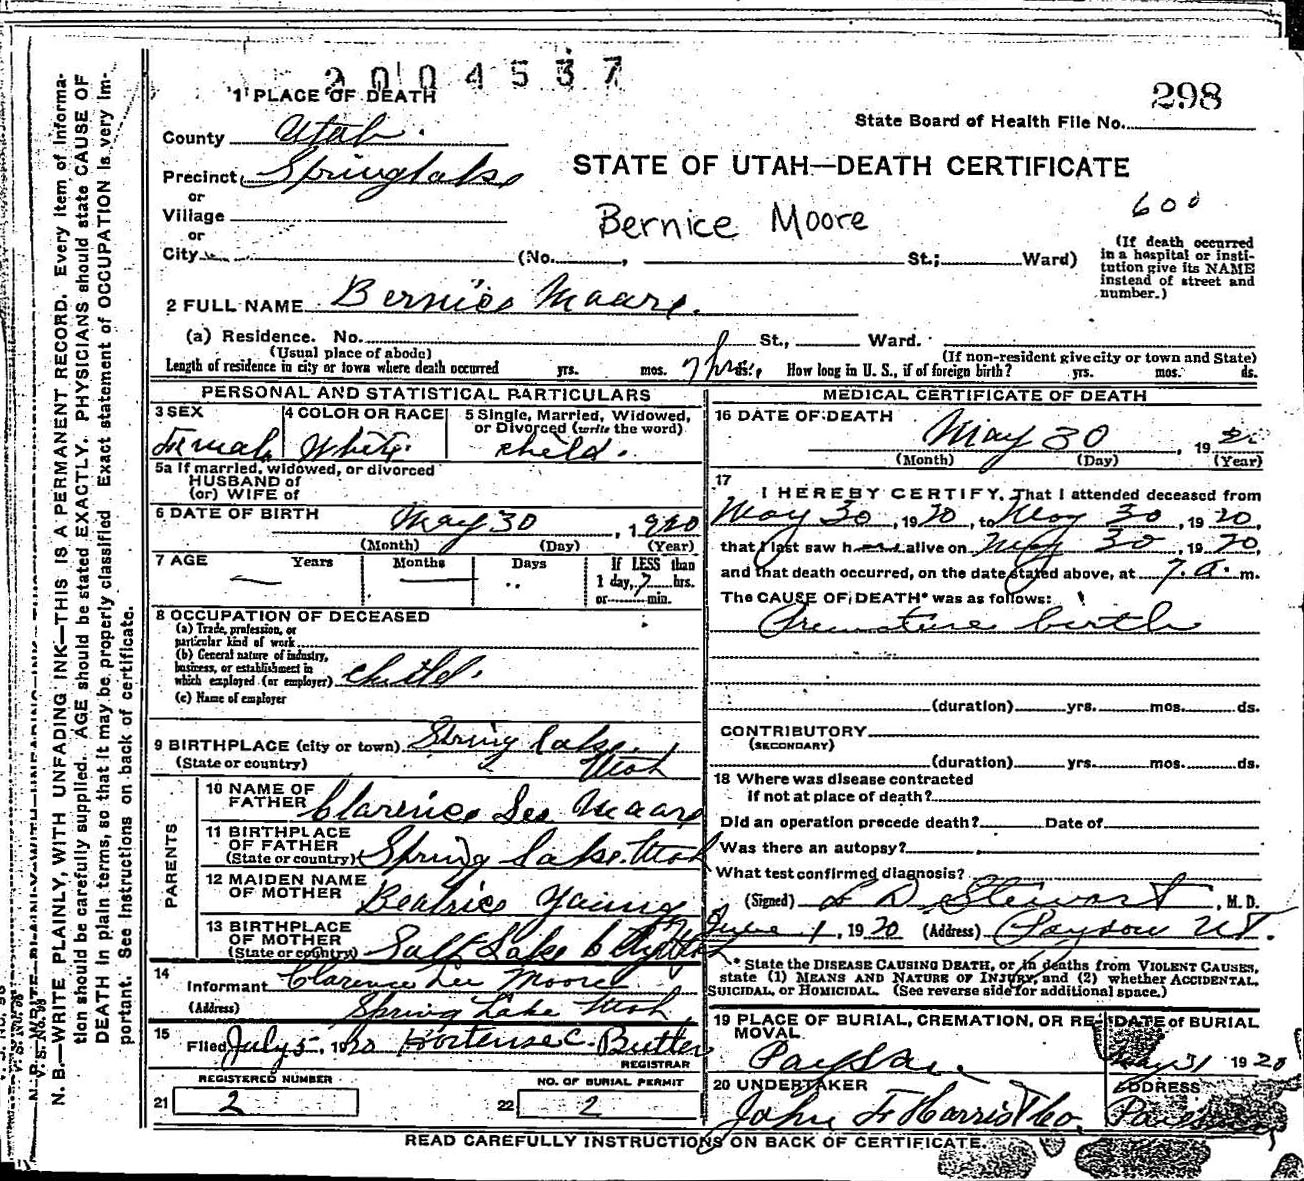 2004537
298
1 PLACE OF DEATH
State Board of Health File No.
County Utah.
STATE OF UTAH—DEATH CERTIFICATE
Precinct Springlake
or
Village
Bernice Moore
600
or
City (No. , St.; Ward)
(If death occurred in a hospital or insti-
tution give its NAME
instead of street and
number.)
2 FULL NAME Bernice Moore.
(a) Residence. No. St., Ward.
(Usual place of abode) (If non-resident give city or town and State)
Length of residence in city or town where death occurred yrs. mos. 7 hrs. ds. How long in U. S., if of foreign birth? yrs. mos. ds.
PERSONAL AND STATISTICAL PARTICULARS
3 SEX 4 COLOR OR RACE 5 Single, Married, Widowed,
or Divorced (write the word)
Female White. child.
5a If married, widowed, or divorced
HUSBAND of
(or) WIFE of
6 DATE OF BIRTH May 30, 1920
(Month) (Day) (Year)
7 AGE Years Months Days If LESS than
1 day, 7 hrs.
or min.
8 OCCUPATION OF DECEASED
(a) Trade, profession, or
particular kind of work
(b) General nature of industry,
business, or establishment in
which employed (or employer) child.
(c) Name of employer
9 BIRTHPLACE (city or town) Spring Lake,
(State or country) Utah
PARENTS
10 NAME OF
FATHER Clarence Lee Moore
11 BIRTHPLACE
OF FATHER
(State or country) Spring Lake. Utah
12 MAIDEN NAME
OF MOTHER Beatrice Young
13 BIRTHPLACE
OF MOTHER
(State or country) Salt Lake City Utah
14
Informant Clarence Lee Moore
(Address) Spring Lake Utah.
15
Filed July 5, 1920 Hortense C. Butler
REGISTRAR
REGISTERED NUMBER NO. OF BURIAL PERMIT
21 2 22 2
MEDICAL CERTIFICATE OF DEATH
16 DATE OF DEATH May 30, 19
(Month) (Day) (Year)
17
I HEREBY CERTIFY, That I attended deceased from
May 30, 1920, to May 30, 1920,
that I last saw h alive on May 30, 1920,
and that death occurred, on the date stated above, at 7. a. m.
The CAUSE OF DEATH* was as follows:
Premature birth
(duration) yrs. mos. ds.
CONTRIBUTORY
(SECONDARY)
(duration) yrs. mos. ds.
18 Where was disease contracted
if not at place of death?
Did an operation precede death? Date of
Was there an autopsy?
What test confirmed diagnosis?
(Signed) L D Stewart, M. D.
June 1, 1920 (Address) Payson UT.
* State the DISEASE CAUSING DEATH, or in deaths from VIOLENT CAUSES,
state (1) MEANS AND NATURE OF INJURY, and (2) whether ACCIDENTAL,
SUICIDAL, or HOMICIDAL. (See reverse side for additional space.)
19 PLACE OF BURIAL, CREMATION, OR RE-
MOVAL
Payson.
DATE of BURIAL
May 31 1920
20 UNDERTAKER
John F Harris & Co.
ADDRESS
Payson
READ CAREFULLY INSTRUCTIONS ON BACK OF CERTIFICATE.
N. B.—WRITE PLAINLY, WITH UNFADING INK—THIS IS A PERMANENT RECORD. Every item of informa-
tion should be carefully supplied. AGE should be stated EXACTLY. PHYSICIANS should state CAUSE OF
DEATH in plain terms, so that it may be properly classified. Exact statement of OCCUPATION is very im-
portant. See instructions on back of certificate.